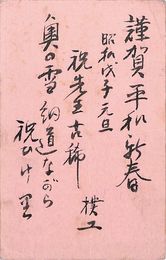 謹賀平和新春
昭和戊子元旦
祝先生古稀
樸工
奥の雪細道ながら
祝ひけり